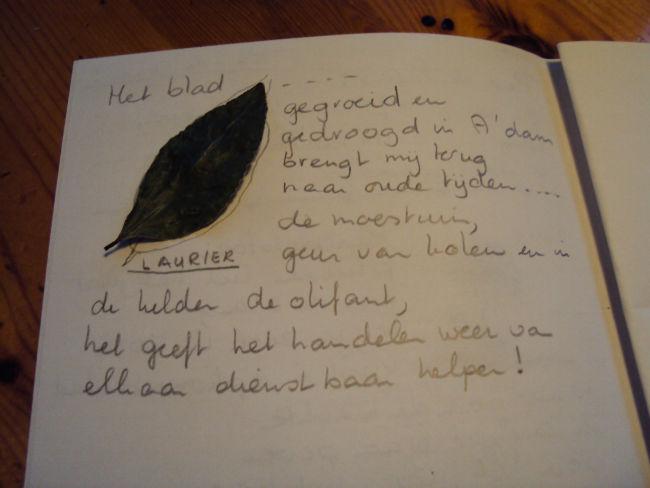 Het blad - - - -
gegroeid en
gedroogd in A'dam
brengt mij terug
naar oude tijden....
de moestuin,
geur van kolen en in
LAURIER
de kelder de olifant,
het geeft het handelen weer van
elkaar dienstbaar helpen!